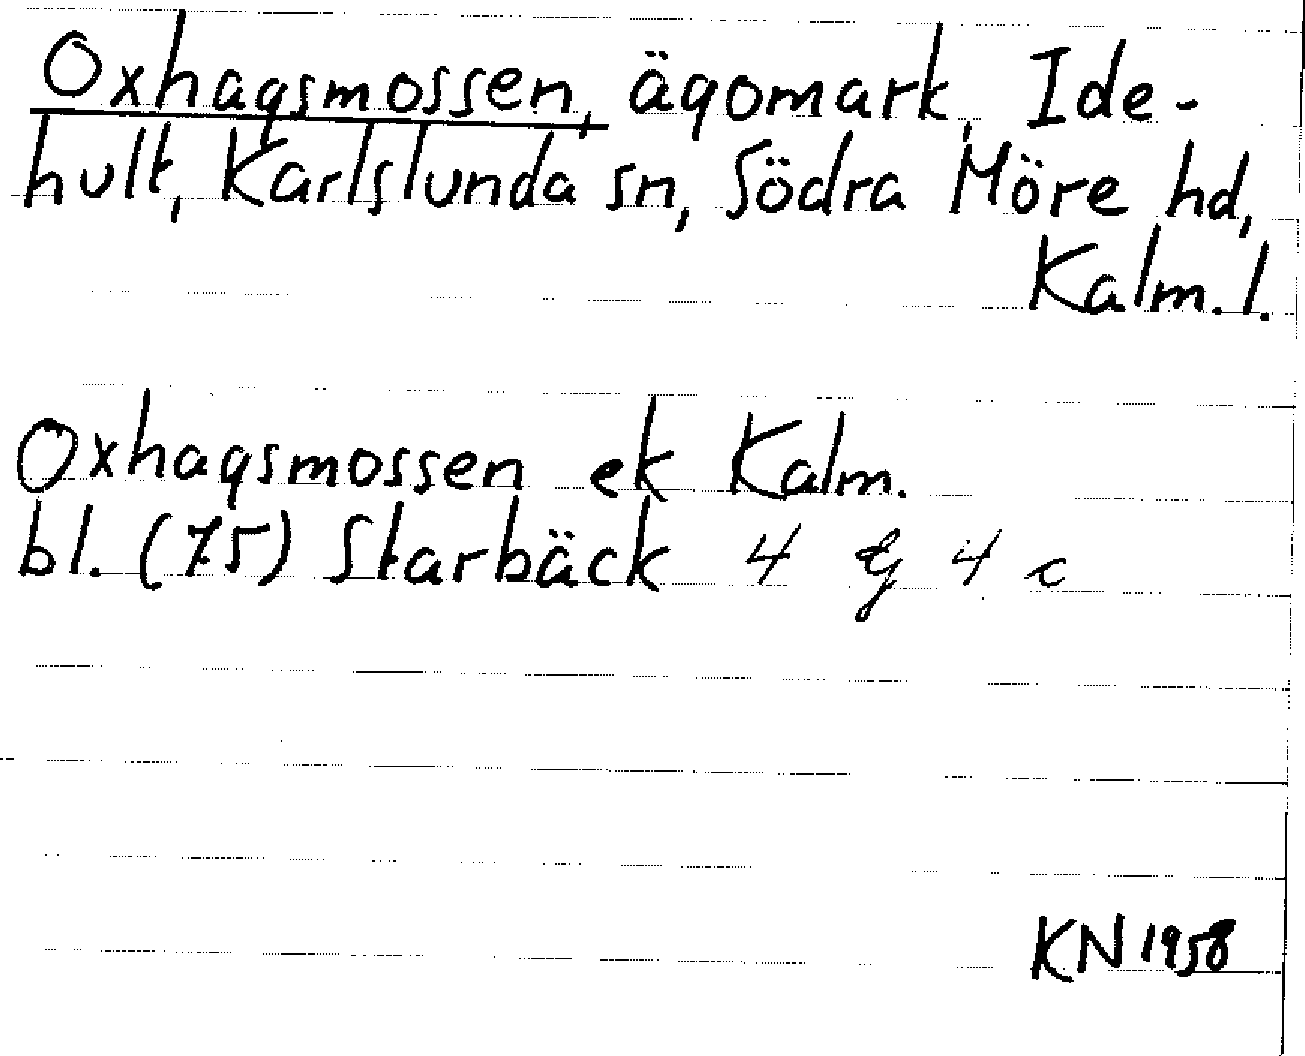 Oxhagsmossen, ägomark, Ide-
hult, Karlslunda sn, Södra Möre hd,
Kalm. l.
Oxhagsmossen ek Kalm.
bl. (75) Starbäck 4 G 4 c
KN 1958